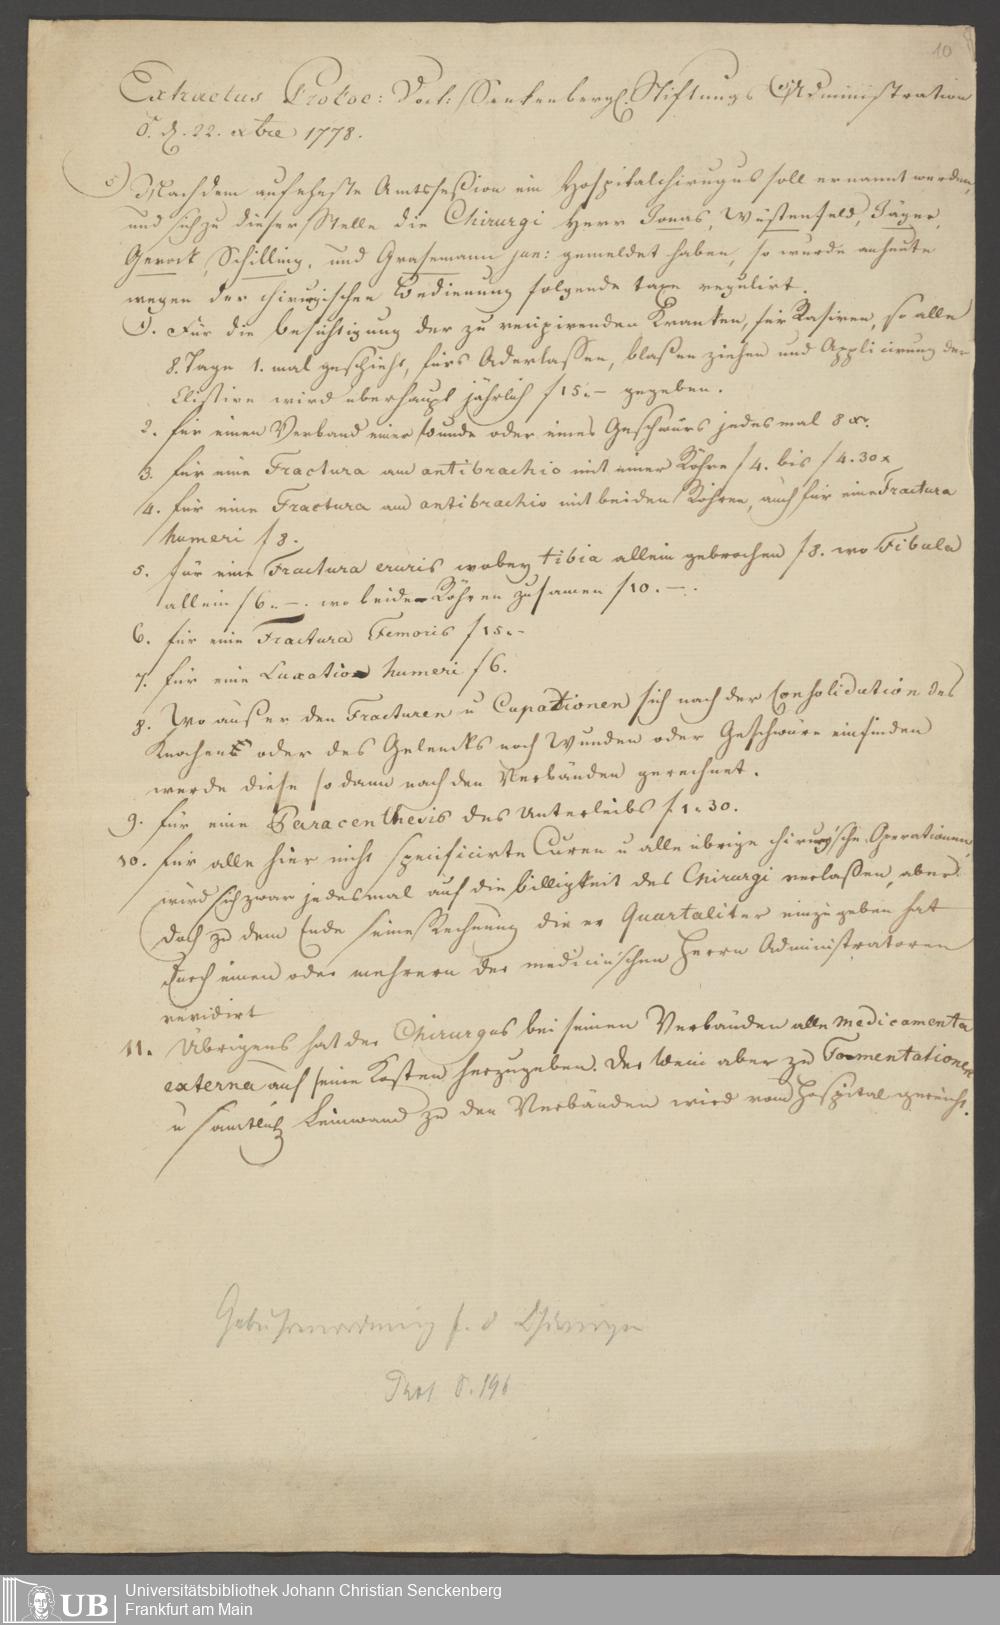 10
Extractus Protoc: Doct: Senkenbergl. Stiftungs Administration
d. d. 22. xbre 1778.
5) Nachdem auf nächste Amtssession ein Hospitalchirugus soll ernannt werden,
und sich zu dieser Stelle die Chirurgi Herr Jonas, Wüstenfeld, Jäger,
Gerock, Schilling, und Grasemann jun: gemeldet haben, so wurde anheute
wegen der chirurgischen Bedienung folgende taxe regulirt.
1. Für die besichtigung der zu recipirenden Kranken, für Rasiren, so alle
8. Tage 1. mal geschieht, fürs Aderlassen, blasen ziehen und Applicirung der
Clistire wird überhaupt jährlich f 15.– gegeben.
2. für einen Verband einer Wunde oder eines Geschwürs jedesmal 8 xr.
3. für eine Fractura am antibrachio mit einer Röhre f 4. bis f 4.30 x
4. für eine Fractura am antibrachio mit beiden Röhren, auch für eine Fractura
humeri f 8.
5. für eine Fractura cruris wobey tibia allein gebrochen f 8. wo Fibula
allein f 6. –. wo beide Röhren zusamen f 10. –.
6. für eine Fractura Femoris f 15.–
7. für eine Luxation humeri f 6.
8. Wo außer den Fracturen u Luxationen sich nach der Consolidation des
Knochens oder des Gelencks noch Wunden oder Geschwüre einfinden
werde diese so dann nach den Verbänden gerechnet.
9. für eine Paracenthesis des Unterleibs f. 1.30.
10. für alle hier nicht specificirte Curen u alle übrige chirurgische Operationen,
wird sich zwar jedesmal auf die billigkeit des Chirurgi verlassen, aber
doch zu dem Ende seine Rechnung die er Quartaliter einzugeben hat
durch einen oder mehrern der medicinischen Herrn Administratoren
revidirt
11. Übrigens hat der Chirurgus bei seinen Verbänden alle medicamenta
externa auf seine Kosten herzugeben. Der Wein aber zu Fomentationen
u sämtlich Leinwand zu den Verbänden wird vom Hospital gereicht.
Gebührenordnung f. d Chirurgen
Prot S. 196
UB Universitätsbibliothek Johann Christian Senckenberg
Frankfurt am Main